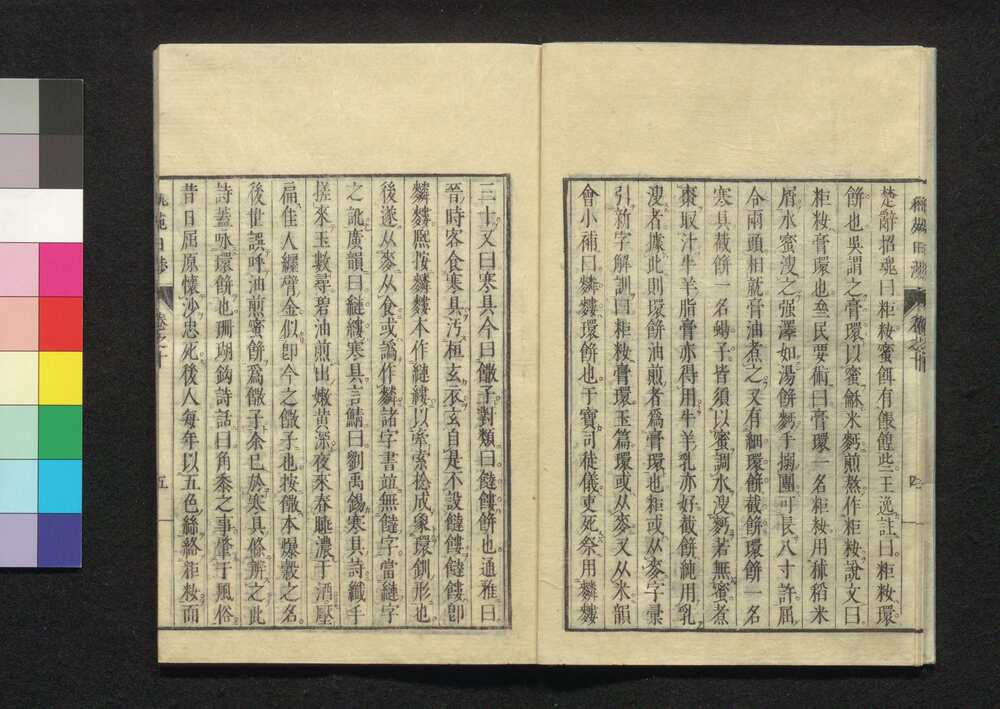 楚辭招魂曰粔籹蜜餌有餦餭些王逸註曰粔籹環
餅也吳謂之膏環以蜜龢米麪煎熬作粔籹說文曰
粔籹膏環也 民要術曰膏環一名粔籹用秫稻米
屑水蜜溲之强澤如湯餅麪手搦團可長八寸許屈
令兩頭相就膏油煮之又有細環餅截餅環餅一名
寒具截餅一名蝎子皆須以蜜調水溲麪若無蜜煮
棗取汁牛羊脂膏亦得用牛羊乳亦好截餅純用乳
溲者據此則環餅油煎者爲膏環也粔或从麥字彙
引新字解訓曰粔籹膏環玉篇環或从麥又从米韻
會小補曰 環餅也于寶司徒儀吏死祭用
三十又曰寒具今曰饊子對類曰饐餿餅也通雅曰
晉時客食寒具汚桓玄衣玄自是不設 卽
 熈按 本作縺縷以牽索捻成象環釧形也
後遂从麥从食或譌作 諸字書竝無 字當縺字
之訛廣韻曰縺縷寒具言鯖曰劉禹錫寒具詩纖手
搓來玉數尋碧油煎出嫩黄深夜來春睡濃于酒壓
扁佳人纏臂金似卽今之饊子也按饊本爆穀之名
後世誤呼油煎蜜餅爲饊子余已於寒具條辨之此
詩蓋咏環餅也珊瑚鈎詩話曰角黍之事肇于風俗
昔日屈原懷沙忠死後人每年以五色絲絡粔籹而
五